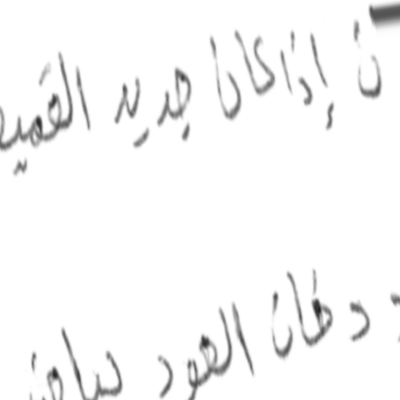 ن إذا كان جديد القميص
دخان العود